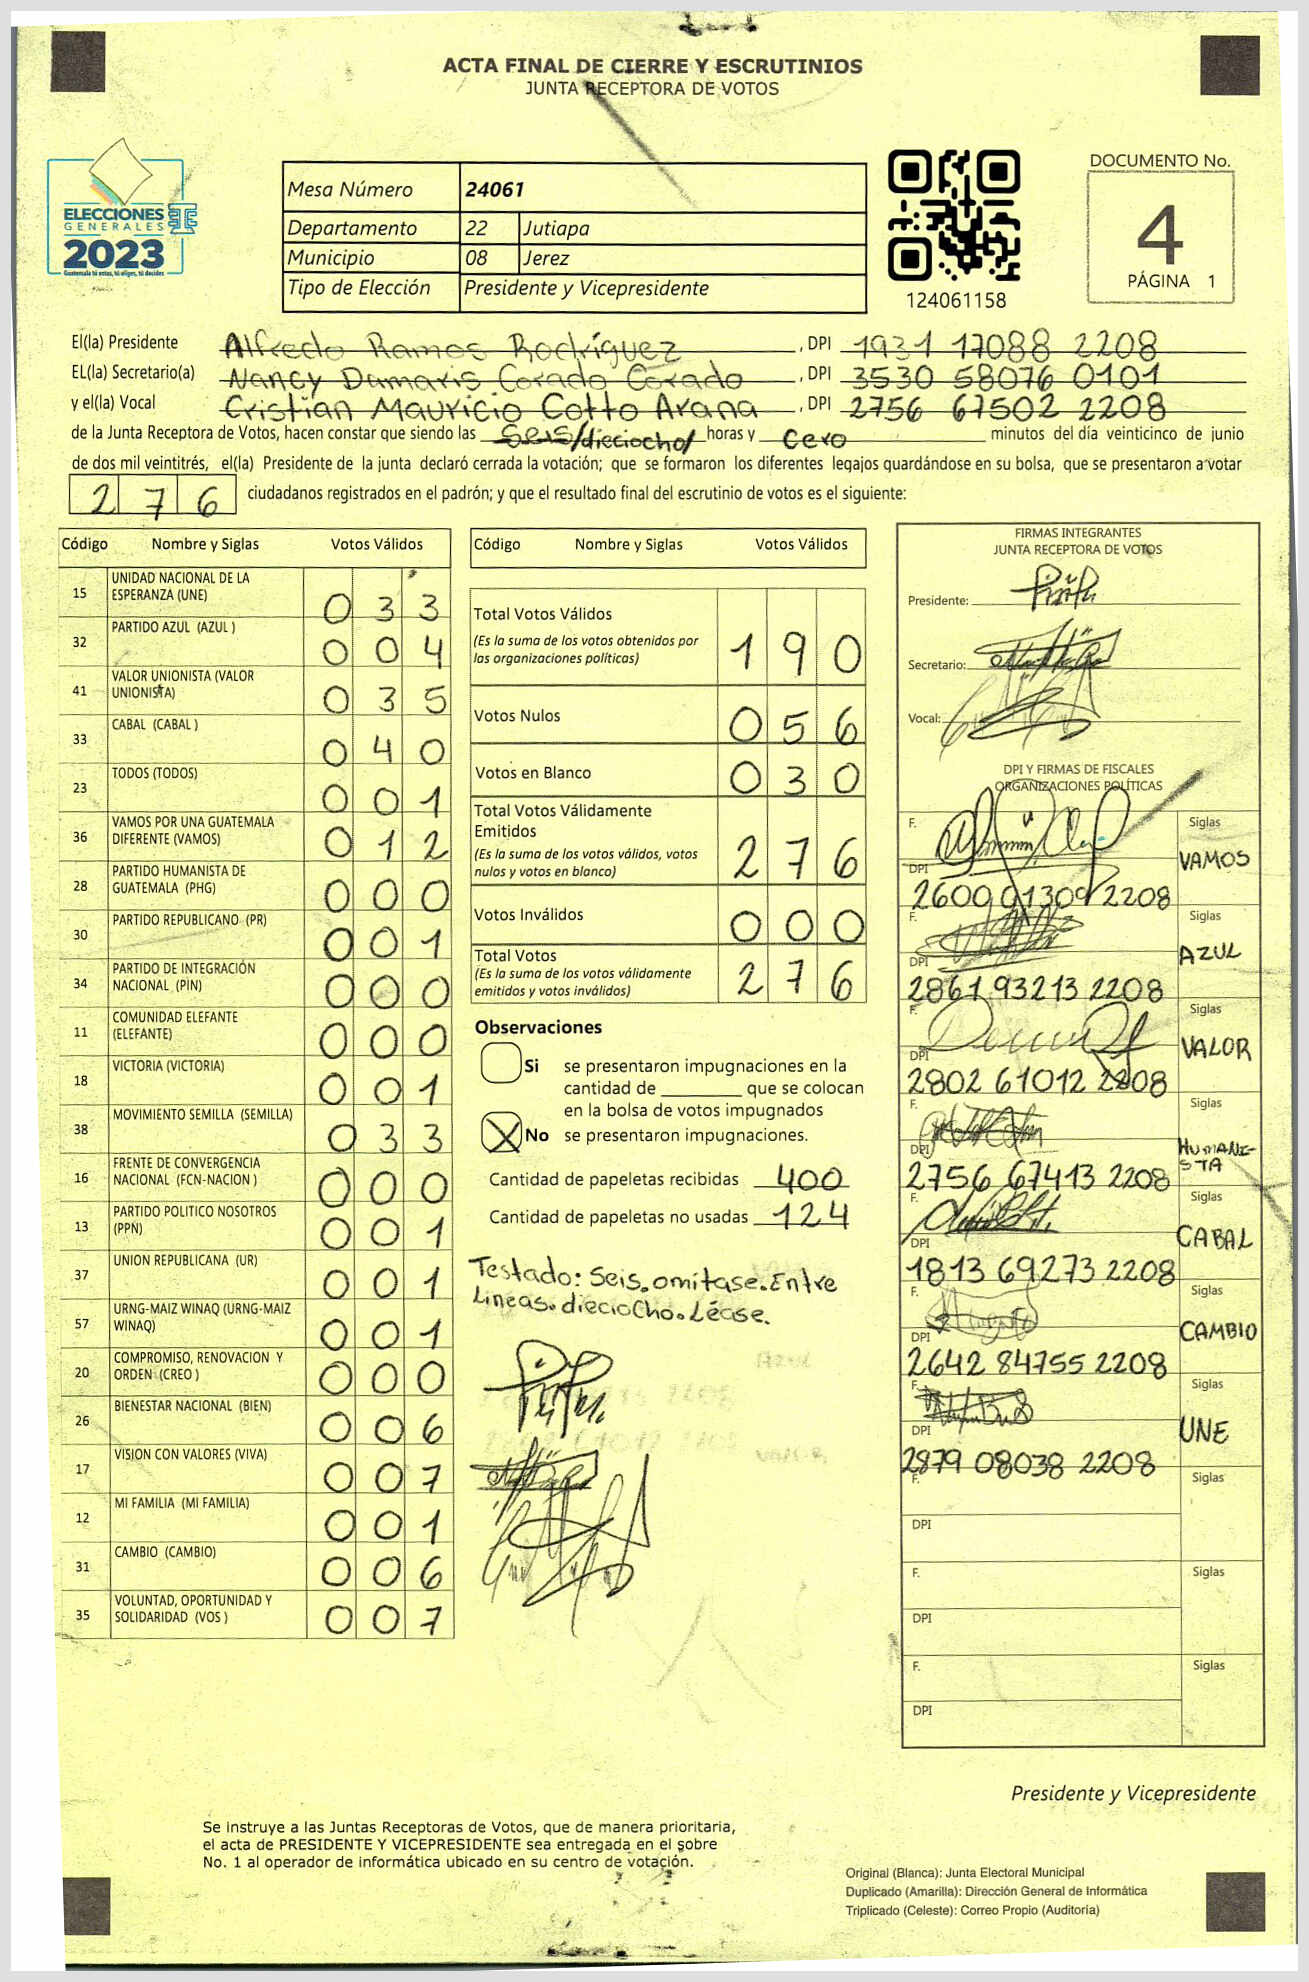 ACTA FINAL DE CIERRE Y ESCRUTINIOS
JUNTA RECEPTORA DE VOTOS
ELECCIONES
GENERALES
2023
Guatemala tú estas, tú eliges, tú decides
Mesa Número 24061
Departamento 22 Jutiapa
Municipio 08 Jerez
Tipo de Elección Presidente y Vicepresidente
124061158
DOCUMENTO No.
4
PÁGINA 1
El(la) Presidente Alfredo Ramos Rodríguez , DPI 1931 17088 2208
EL(la) Secretario(a) Nancy Damaris Corado Corado , DPI 3530 58076 0101
y el(la) Vocal Cristian Mauricio Cotto Arana , DPI 2756 67502 2208
de la Junta Receptora de Votos, hacen constar que siendo las seis/dieciocho/ horas y cero minutos del día veinticinco de junio
de dos mil veintitrés, el(la) Presidente de la junta declaró cerrada la votación; que se formaron los diferentes legajos guardándose en su bolsa, que se presentaron a votar
276 ciudadanos registrados en el padrón; y que el resultado final del escrutinio de votos es el siguiente:
Código Nombre y Siglas Votos Válidos
15 UNIDAD NACIONAL DE LA ESPERANZA (UNE) 033
32 PARTIDO AZUL (AZUL ) 004
41 VALOR UNIONISTA (VALOR UNIONISTA) 035
33 CABAL (CABAL ) 040
23 TODOS (TODOS) 001
36 VAMOS POR UNA GUATEMALA DIFERENTE (VAMOS) 012
28 PARTIDO HUMANISTA DE GUATEMALA (PHG) 000
30 PARTIDO REPUBLICANO (PR) 001
34 PARTIDO DE INTEGRACIÓN NACIONAL (PIN) 000
11 COMUNIDAD ELEFANTE (ELEFANTE) 000
18 VICTORIA (VICTORIA) 001
38 MOVIMIENTO SEMILLA (SEMILLA) 033
16 FRENTE DE CONVERGENCIA NACIONAL (FCN-NACION ) 000
13 PARTIDO POLITICO NOSOTROS (PPN) 001
37 UNION REPUBLICANA (UR) 001
57 URNG-MAIZ WINAQ (URNG-MAIZ WINAQ) 001
20 COMPROMISO, RENOVACION Y ORDEN (CREO ) 000
26 BIENESTAR NACIONAL (BIEN) 006
17 VISION CON VALORES (VIVA) 007
12 MI FAMILIA (MI FAMILIA) 001
31 CAMBIO (CAMBIO) 006
35 VOLUNTAD, OPORTUNIDAD Y SOLIDARIDAD (VOS ) 007
Código Nombre y Siglas Votos Válidos
Total Votos Válidos 190
(Es la suma de los votos obtenidos por
las organizaciones políticas)
Votos Nulos 056
Votos en Blanco 030
Total Votos Válidamente
Emitidos 276
(Es la suma de los votos válidos, votos
nulos y votos en blanco)
Votos Inválidos 000
Total Votos 276
(Es la suma de los votos válidamente
emitidos y votos inválidos)
Observaciones
Si se presentaron impugnaciones en la
cantidad de ________ que se colocan
en la bolsa de votos impugnados
X No se presentaron impugnaciones.
Cantidad de papeletas recibidas 400
Cantidad de papeletas no usadas 124
Testado: Seis.omitase.Entre
Lineas.dieciocho.Léase.
FIRMAS INTEGRANTES
JUNTA RECEPTORA DE VOTOS
Presidente:
Secretario:
Vocal:
DPI Y FIRMAS DE FISCALES
ORGANIZACIONES POLÍTICAS
F. Siglas VAMOS
DPI 2600 01309 2208
F. Siglas AZUL
DPI 2861 93213 2208
F. Siglas VALOR
DPI 2802 61012 2208
F. Siglas HUMANI-
STA
DPI 2756 67413 2208
F. Siglas CABAL
DPI 1813 69273 2208
F. Siglas CAMBIO
DPI 2642 84755 2208
F. Siglas UNE
DPI 2879 08038 2208
F. Siglas
DPI
F. Siglas
DPI
F. Siglas
DPI
Presidente y Vicepresidente
Se instruye a las Juntas Receptoras de Votos, que de manera prioritaria,
el acta de PRESIDENTE Y VICEPRESIDENTE sea entregada en el sobre
No. 1 al operador de informática ubicado en su centro de votación.
Original (Blanca): Junta Electoral Municipal
Duplicado (Amarilla): Dirección General de Informática
Triplicado (Celeste): Correo Propio (Auditoría)